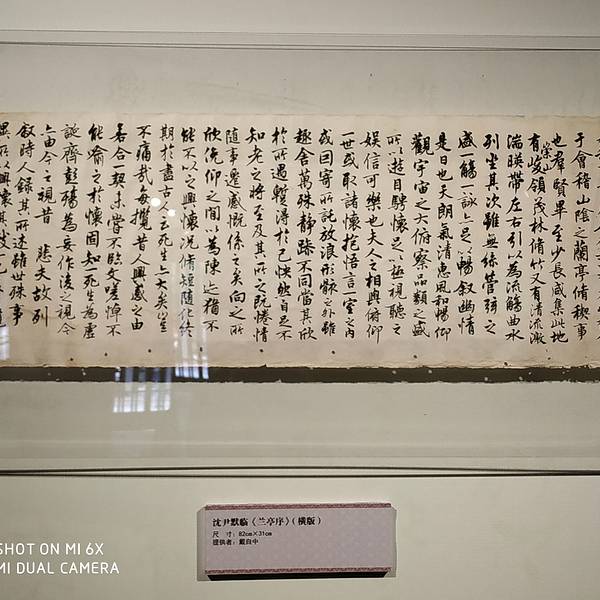 于會稽山陰之蘭亭脩稧事
也羣賢畢至少長咸集此地
有崇山峻領茂林脩竹又有清流激
湍暎帶左右引以為流觴曲水
列坐其次雖無絲竹管弦之
盛一觴一詠亦足以暢叙幽情
是日也天朗氣清惠風和暢仰
觀宇宙之大俯察品類之盛
所以遊目騁懷足以極視聽之
娛信可樂也夫人之相與俯仰
一世或取諸懷抱悟言一室之內
或因寄所託放浪形骸之外雖
趣舍萬殊靜躁不同當其欣
於所遇蹔得於己怏然自足不
知老之將至及其所之既惓情
隨事遷感慨係之矣向之所
欣俛仰之間以為陳迹猶不
能不以之興懷況脩短隨化終
期於盡古人云死生亦大矣豈
不痛哉每攬昔人興感之由
若合一契未嘗不臨文嗟悼不
能喻之於懷固知一死生為虛
誕齊彭殤為妄作後之視今
亦由今之視昔 悲夫故列
叙時人錄其所述雖世殊事
異所以興懷其致一也
沈尹默临《兰亭序》(横版)
尺 寸：82cm×31cm
提供者：戴自中
SHOT ON MI 6X
MI DUAL CAMERA